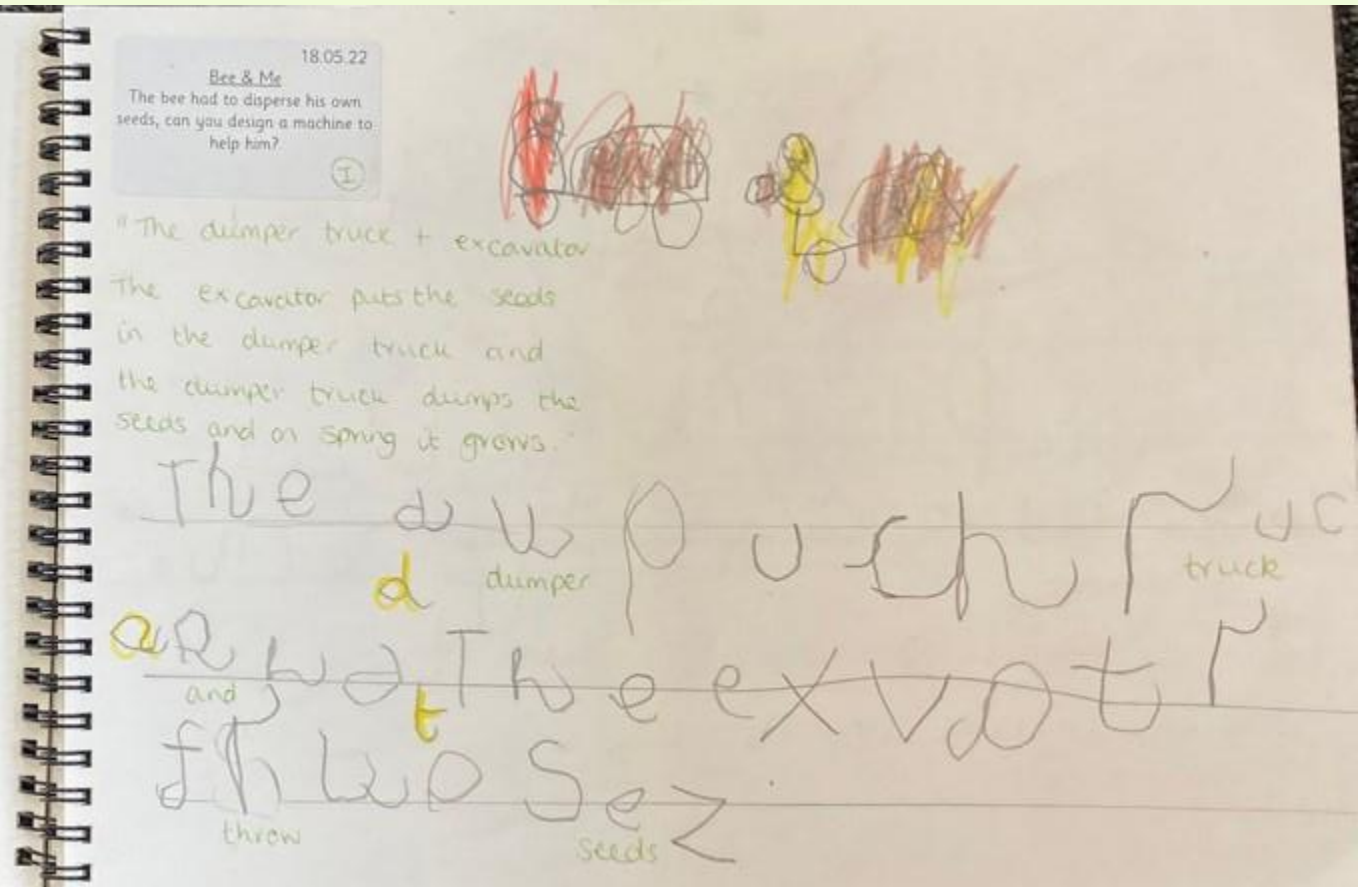 18.05.22
Bee & Me
The bee had to disperse his own
seeds, can you design a machine to
help him?
I
"The dumper truck + excavator
The excavator puts the seeds
in the dumper truck and
the dumper truck dumps the
seeds and on spring it grows."
The du p u ch r uc
d dumper truck
a The exvotr
and t
Sez
throw seeds